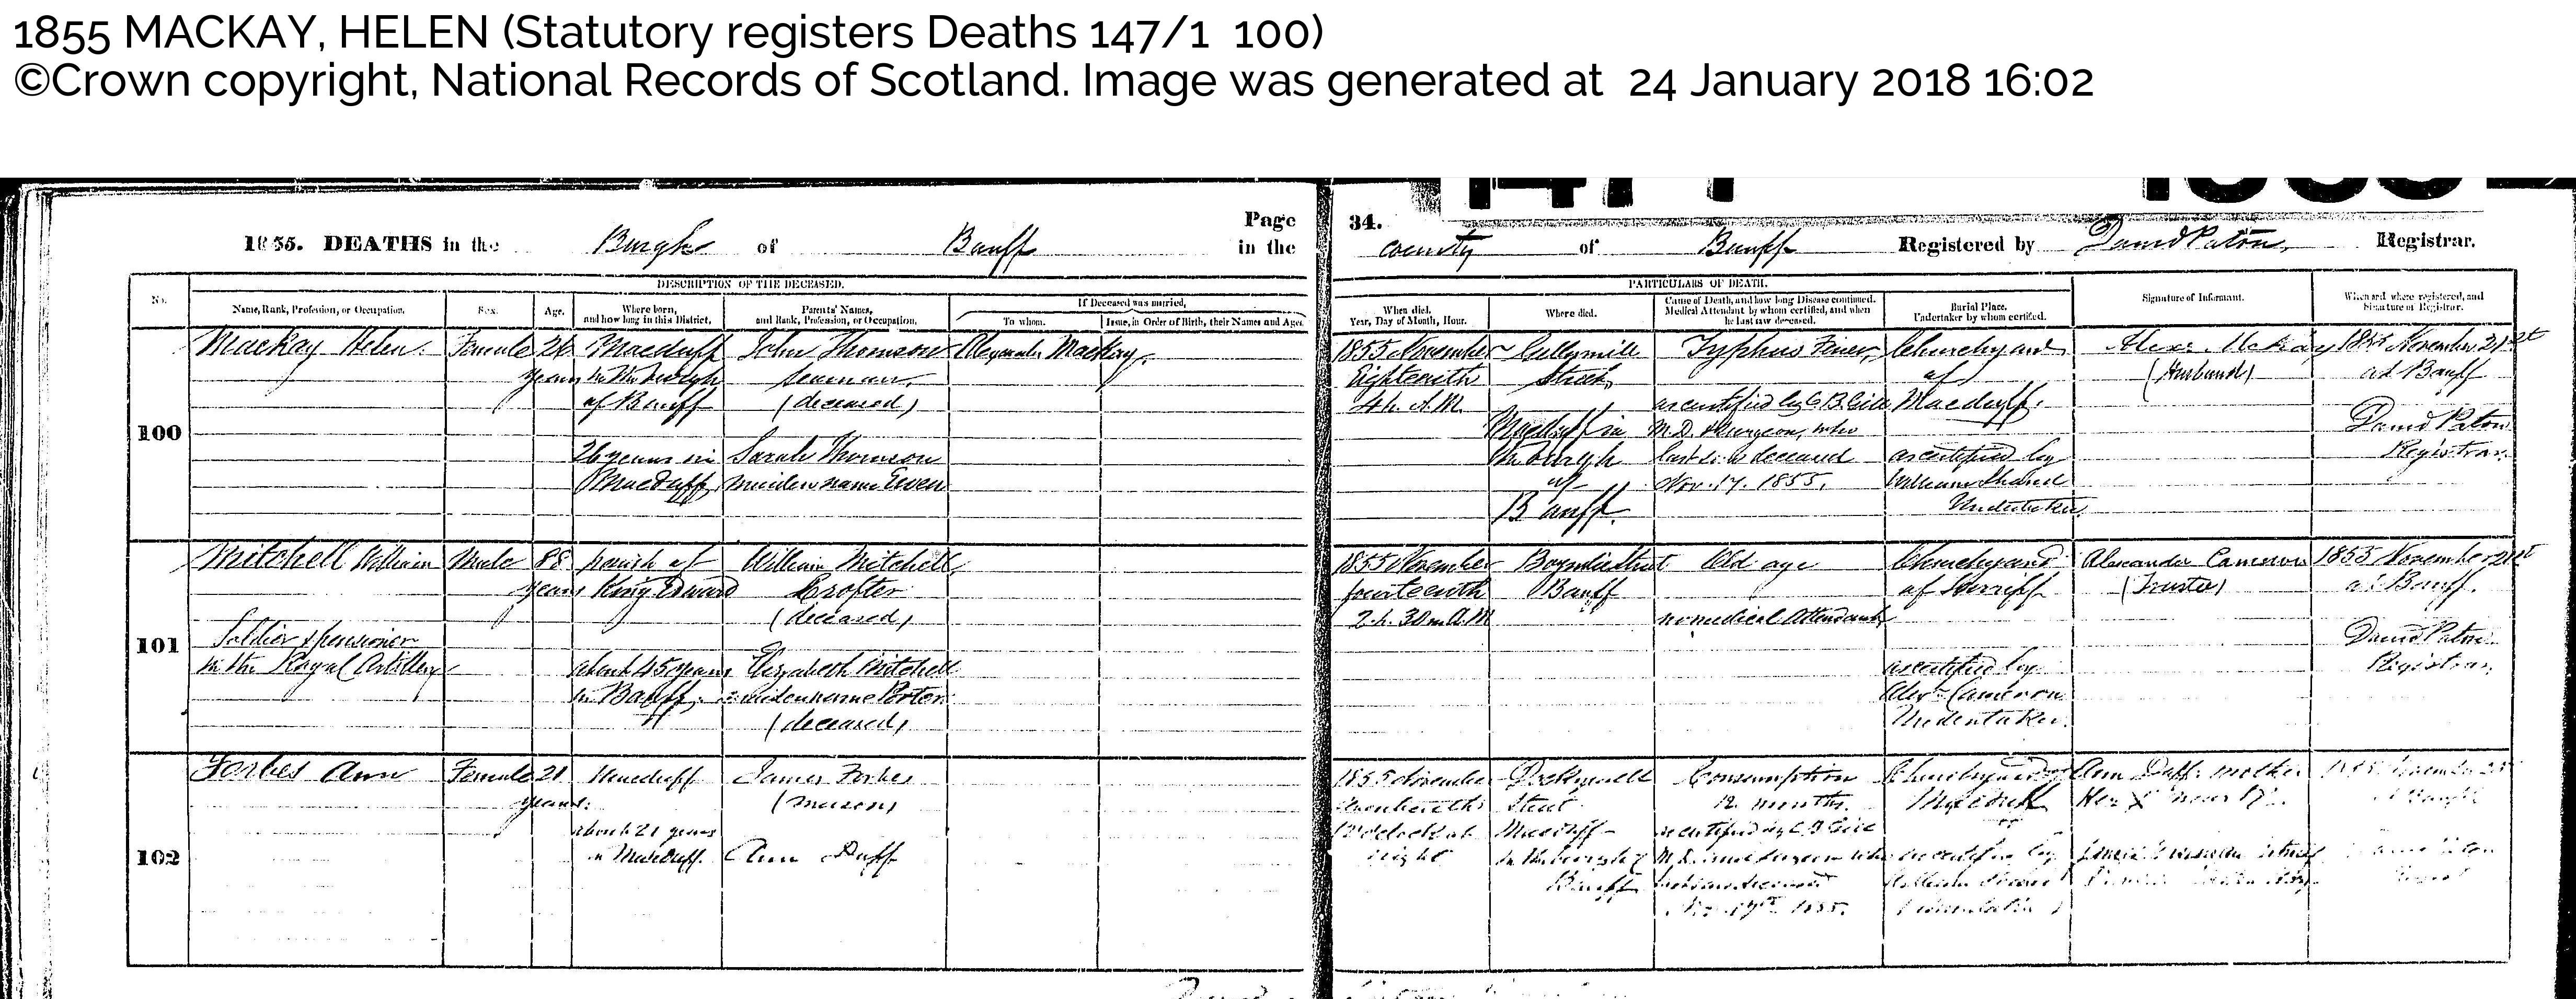 1855 MACKAY, HELEN (Statutory registers Deaths 147/1 100)
©Crown copyright, National Records of Scotland. Image was generated at 24 January 2018 16:02
1855. DEATHS in the Burgh of Banff
Page 34.
in the County of Banff Registered by David Paton, Registrar.
No.
DESCRIPTION OF THE DECEASED.
Name, Rank, Profession, or Occupation.
Sex.
Age.
Where born,
and how long in this District.
Parents' Names,
and Rank, Profession, or Occupation.
If Deceased was married,
To whom.
Issue, in Order of Birth, their Names and Ages.
PARTICULARS OF DEATH.
When died.
Year, Day of Month, Hour.
Where died.
Cause of Death, and how long Disease continued.
Medical Attendant by whom certified, and when
he last saw deceased.
Burial Place.
Undertaker by whom certified.
Signature of Informant.
When and where registered, and
Signature of Registrar.
100
Mackay Helen.
Female
26
years
Macduff
in the burgh
of Banff
26 years in
Macduff
John Thomson
Seaman
(deceased)
Sarah Thomson
maiden name Ewen
Alexander Mackay.
1855 November
Eighteenth
4h. A.M.
Street,
Macduff in
the burgh
of
Banff.
Typhus Fever,
as certified by C. B. Gill
M.D. Surgeon, who
last saw deceased
Nov. 17. 1855.
Churchyard
of
Macduff.
as certified by
William
Undertaker
Alexr. McKay
(Husband)
1855 November 21st
at Banff
David Paton
Registrar.
101
Mitchell William
Soldier pensioner
in the Royal Artillery
Male
88
years
parish of
King Edward
about 45 years
in Banff,
William Mitchell,
Crofter
(deceased)
Elizabeth Mitchell
maiden name Porter
(deceased)
1855 November
fourteenth
2.h. 30m A.M
Boyndie Street
Banff
Old age
no medical Attendant
Churchyard
of
as certified by
Alexr. Cameron
Undertaker.
Alexander Cameron
(Trustee)
1855 November 21st
at Banff.
David Paton
Registrar.
102
Forbes Ann
Female
21
years.
Macduff
about 21 years
in Macduff.
James Forbes
(mason)
Ann Duff
1855 November
at
night
Street
Macduff
in the burgh of
Banff
Consumption
12 months.
as certified by C B Gill
M.D. and Surgeon who
last saw deceased
1855.
Churchyard of
Macduff
as certified by
Ann Duff mother
Her X mark
November